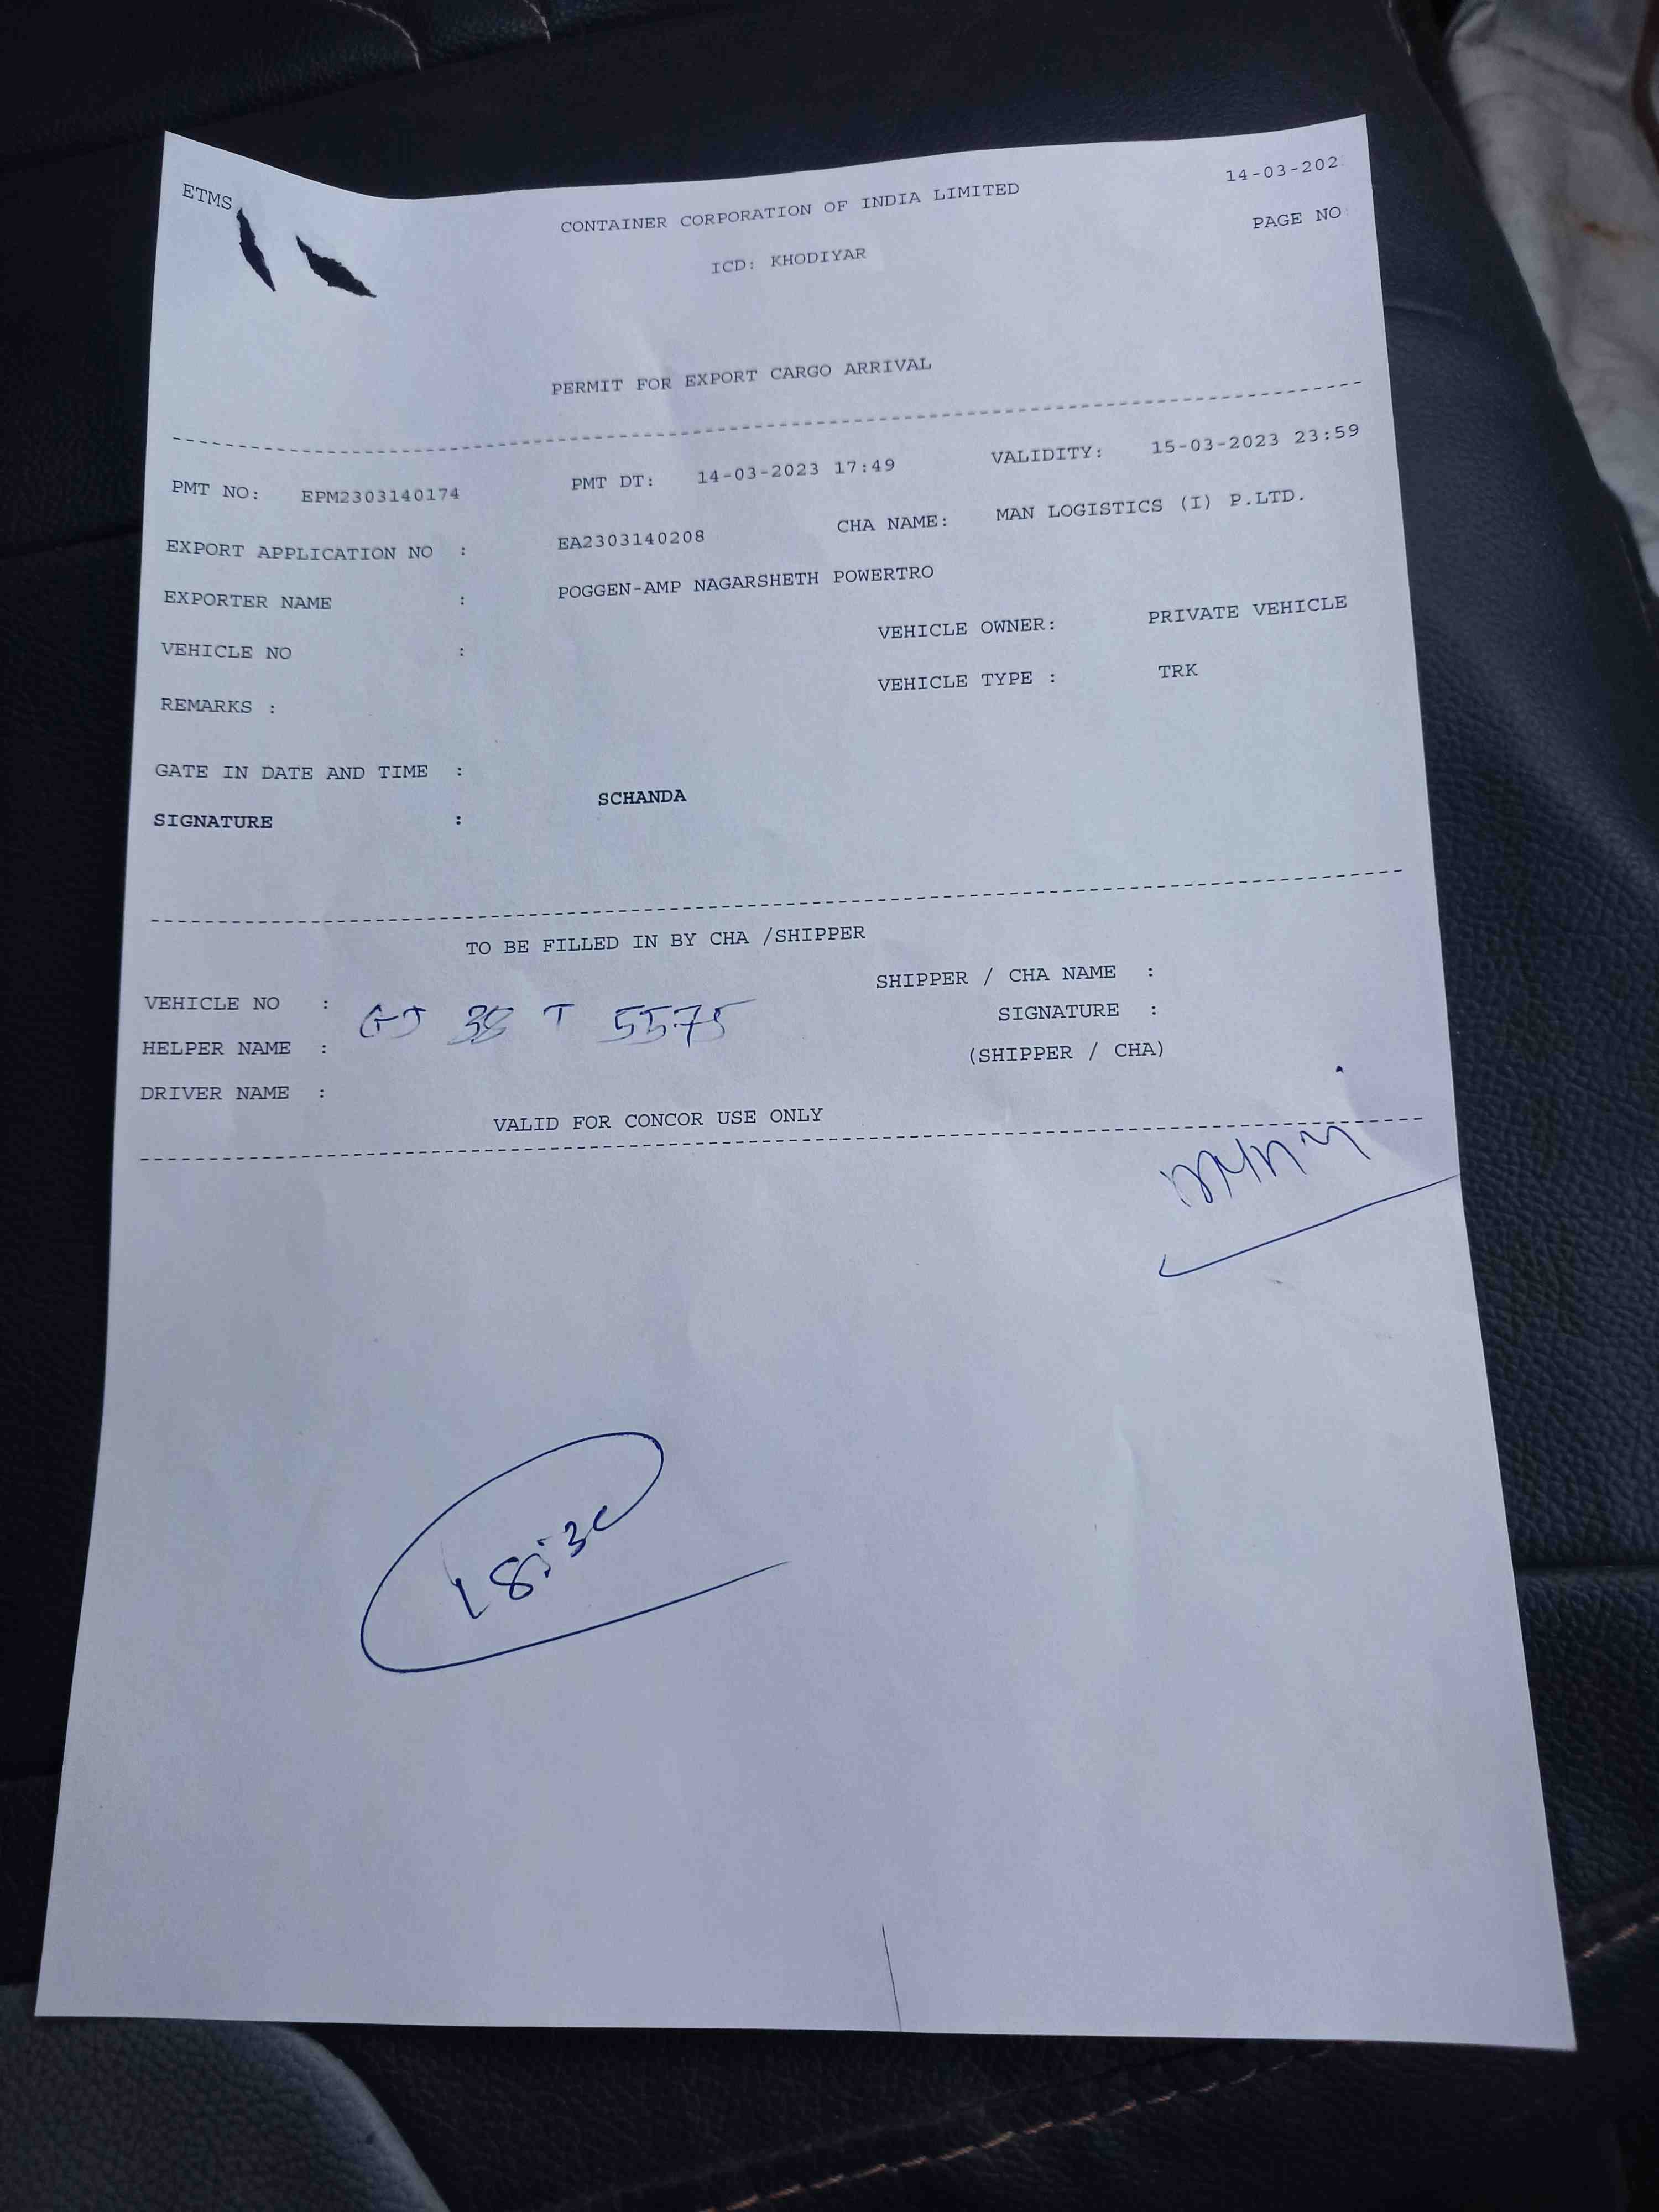 ETMS
14-03-202
CONTAINER CORPORATION OF INDIA LIMITED
PAGE NO
ICD: KHODIYAR
PERMIT FOR EXPORT CARGO ARRIVAL
PMT NO: EPM2303140174 PMT DT: 14-03-2023 17:49 VALIDITY: 15-03-2023 23:59
EXPORT APPLICATION NO : EA2303140208 CHA NAME: MAN LOGISTICS (I) P.LTD.
EXPORTER NAME : POGGEN-AMP NAGARSHETH POWERTRO
VEHICLE NO : VEHICLE OWNER: PRIVATE VEHICLE
REMARKS : VEHICLE TYPE : TRK
GATE IN DATE AND TIME :
SIGNATURE : SCHANDA
TO BE FILLED IN BY CHA /SHIPPER
VEHICLE NO : GJ 38 T 5575 SHIPPER / CHA NAME :
HELPER NAME : SIGNATURE :
DRIVER NAME : (SHIPPER / CHA)
VALID FOR CONCOR USE ONLY